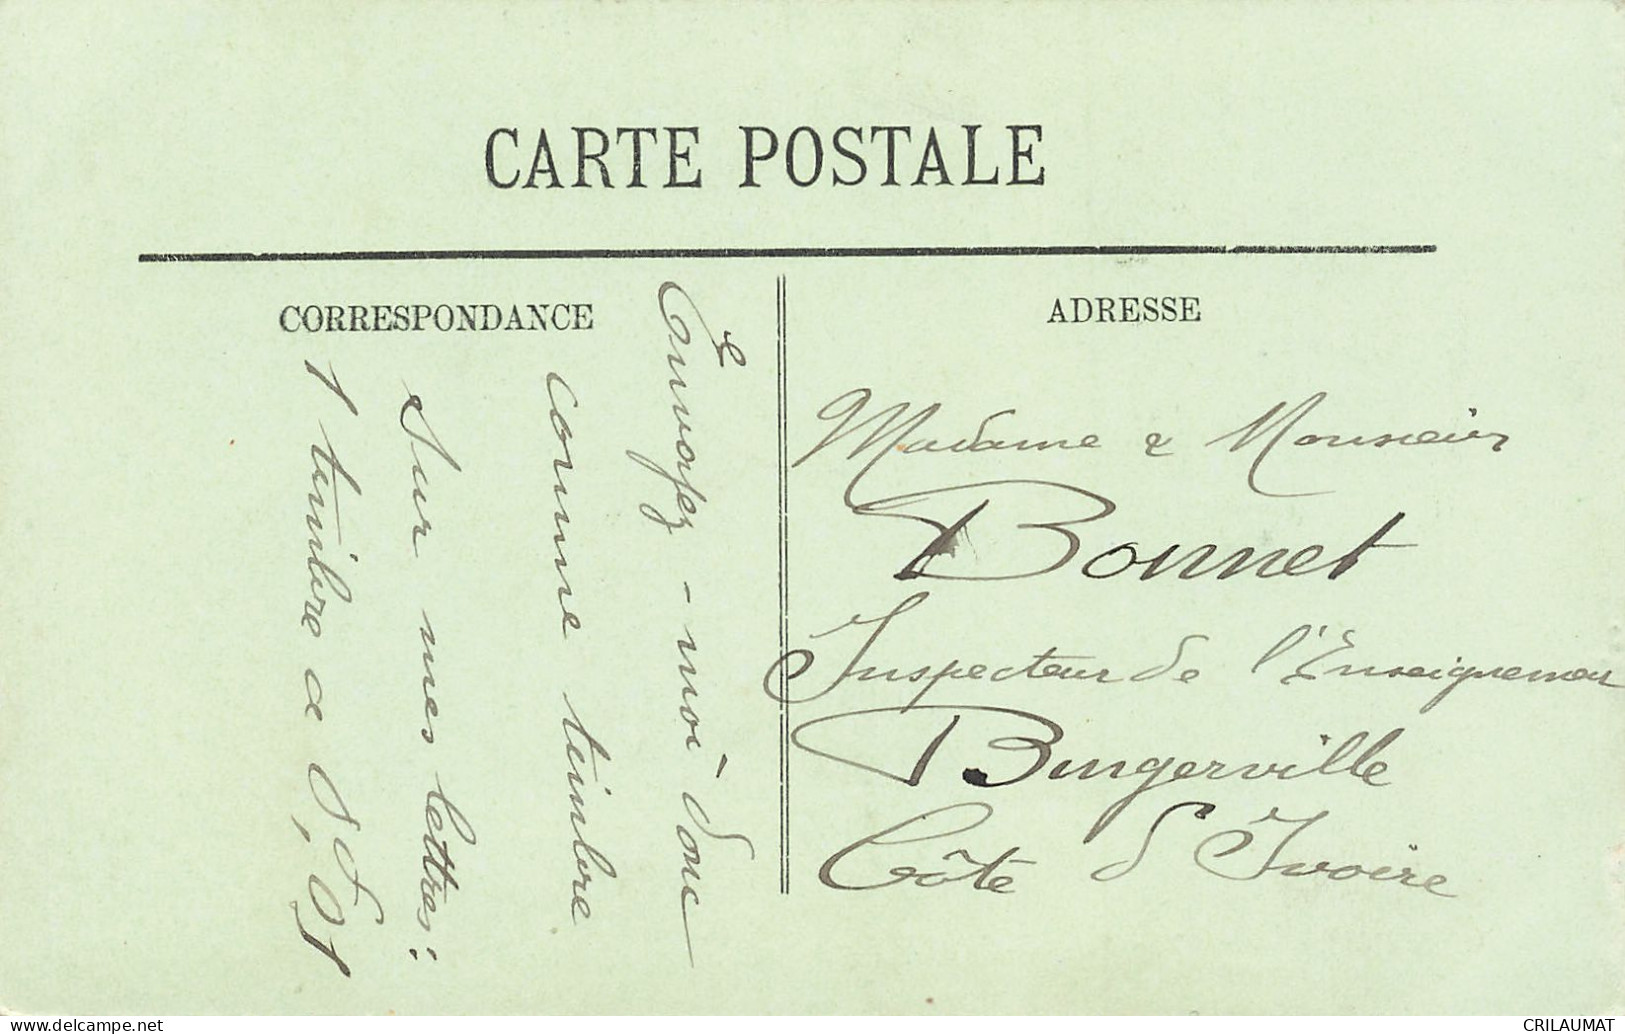 CARTE POSTALE
CORRESPONDANCE
Envoyez-moi donc
comme timbre
sur mes lettres:
1 timbre a 0F,01
ADRESSE
Madame & Monsieur
Bonnet
Inspecteur de l'Enseignement
Bingerville
Côte d'Ivoire
www.delcampe.net
CRILAUMAT